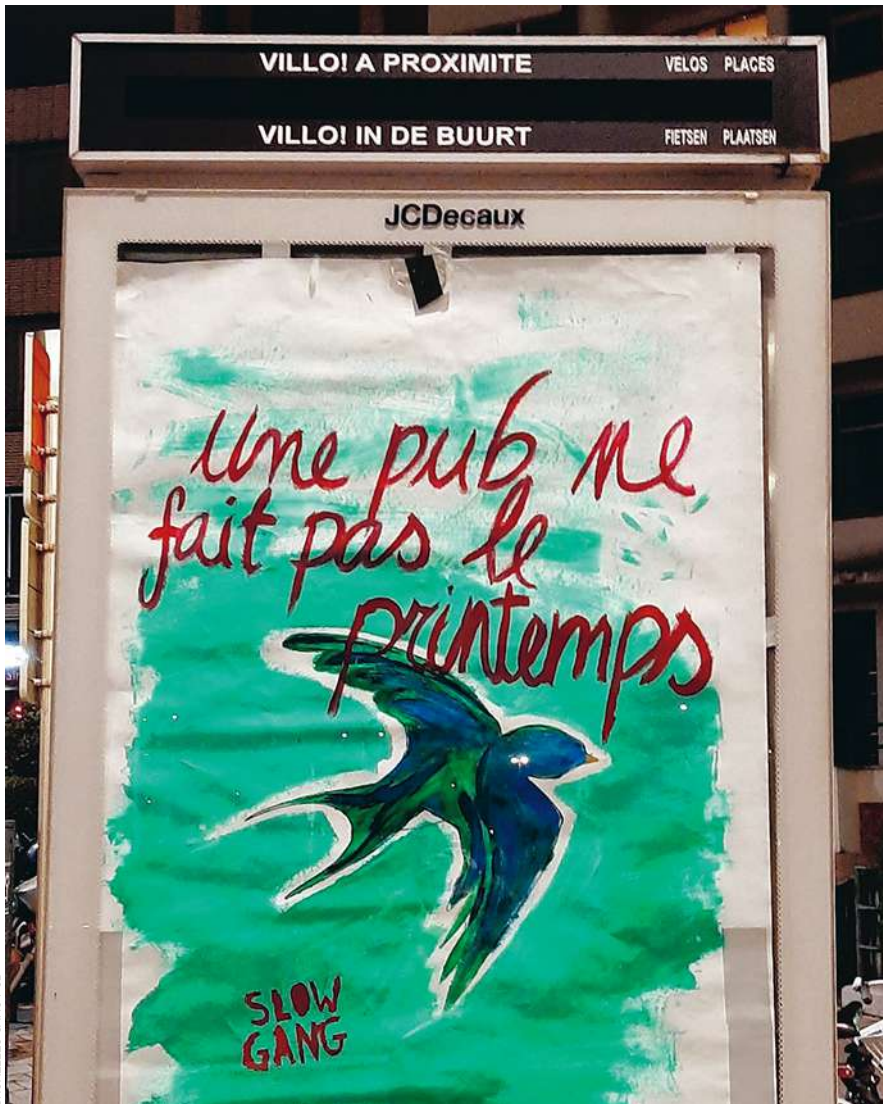 VILLO! A PROXIMITE VELOS PLACES
VILLO! IN DE BUURT FIETSEN PLAATSEN
JCDecaux
une pub ne
fait pas le
printemps
SLOW
GANG